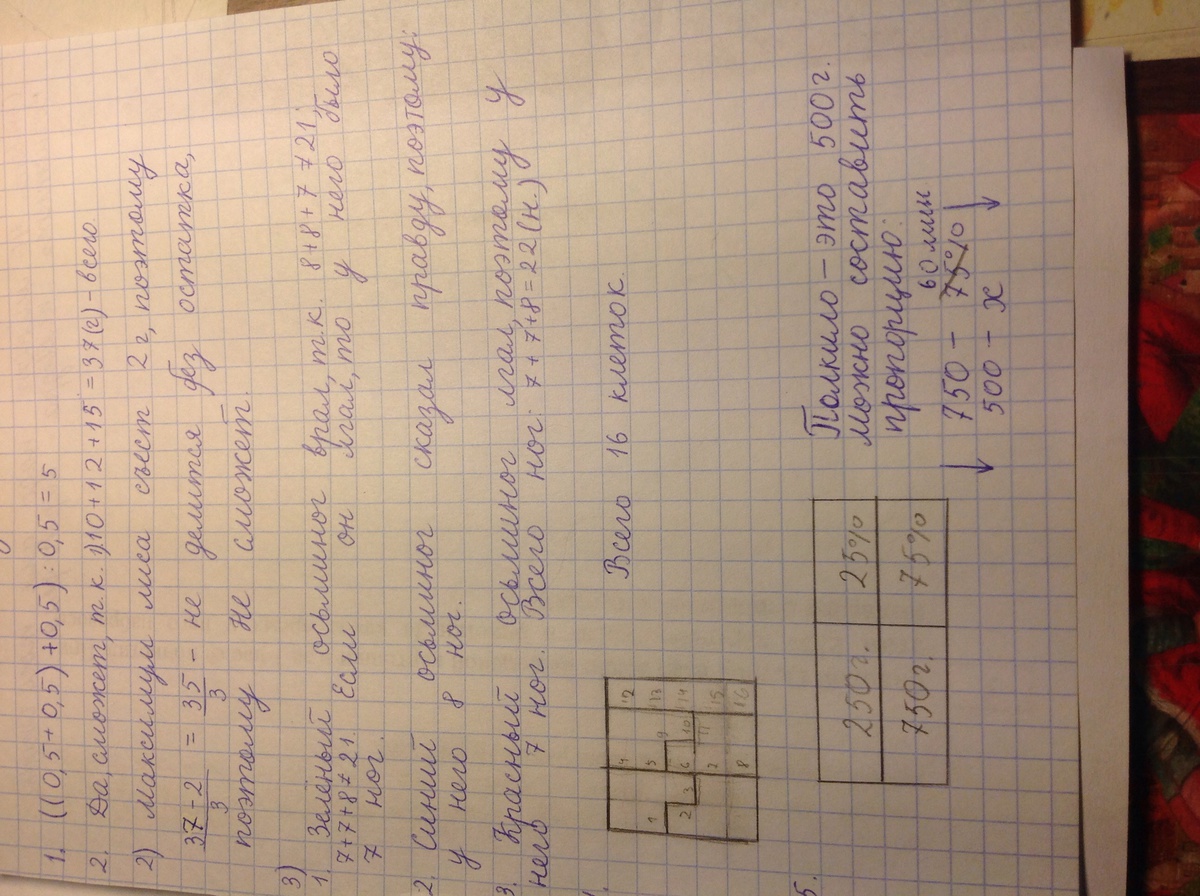 1. ((0,5+0,5)+0,5):0,5=5
2. Да, сможет, т.к. 1)10+12+15=37(г)-всего
2) Максимум лиса съест 2 г, поэтому
37-2/3 = 35/3 - не делится без остатка,
поэтому Не сможет.
3)
1. Зелёный осьминог врал, т.к. 8+8+7≠21,
7+7+8≠21. Если он лгал, то у него было
7 ног.
2. Синий осьминог сказал правду, поэтому:
у него 8 ног.
3. Красный осьминог лгал, поэтому у
него 7 ног. Всего ног: 7+7+8=22(н.)
Всего 16 клеток.
1 4 12
5 9 13
2 3 6 10 14
7 11 15
8 16
5.
250г. 25%
750г. 75%
Полкило - это 500г.
можно составить
пропорцию:
60 мин
750 - 75%
500 - x